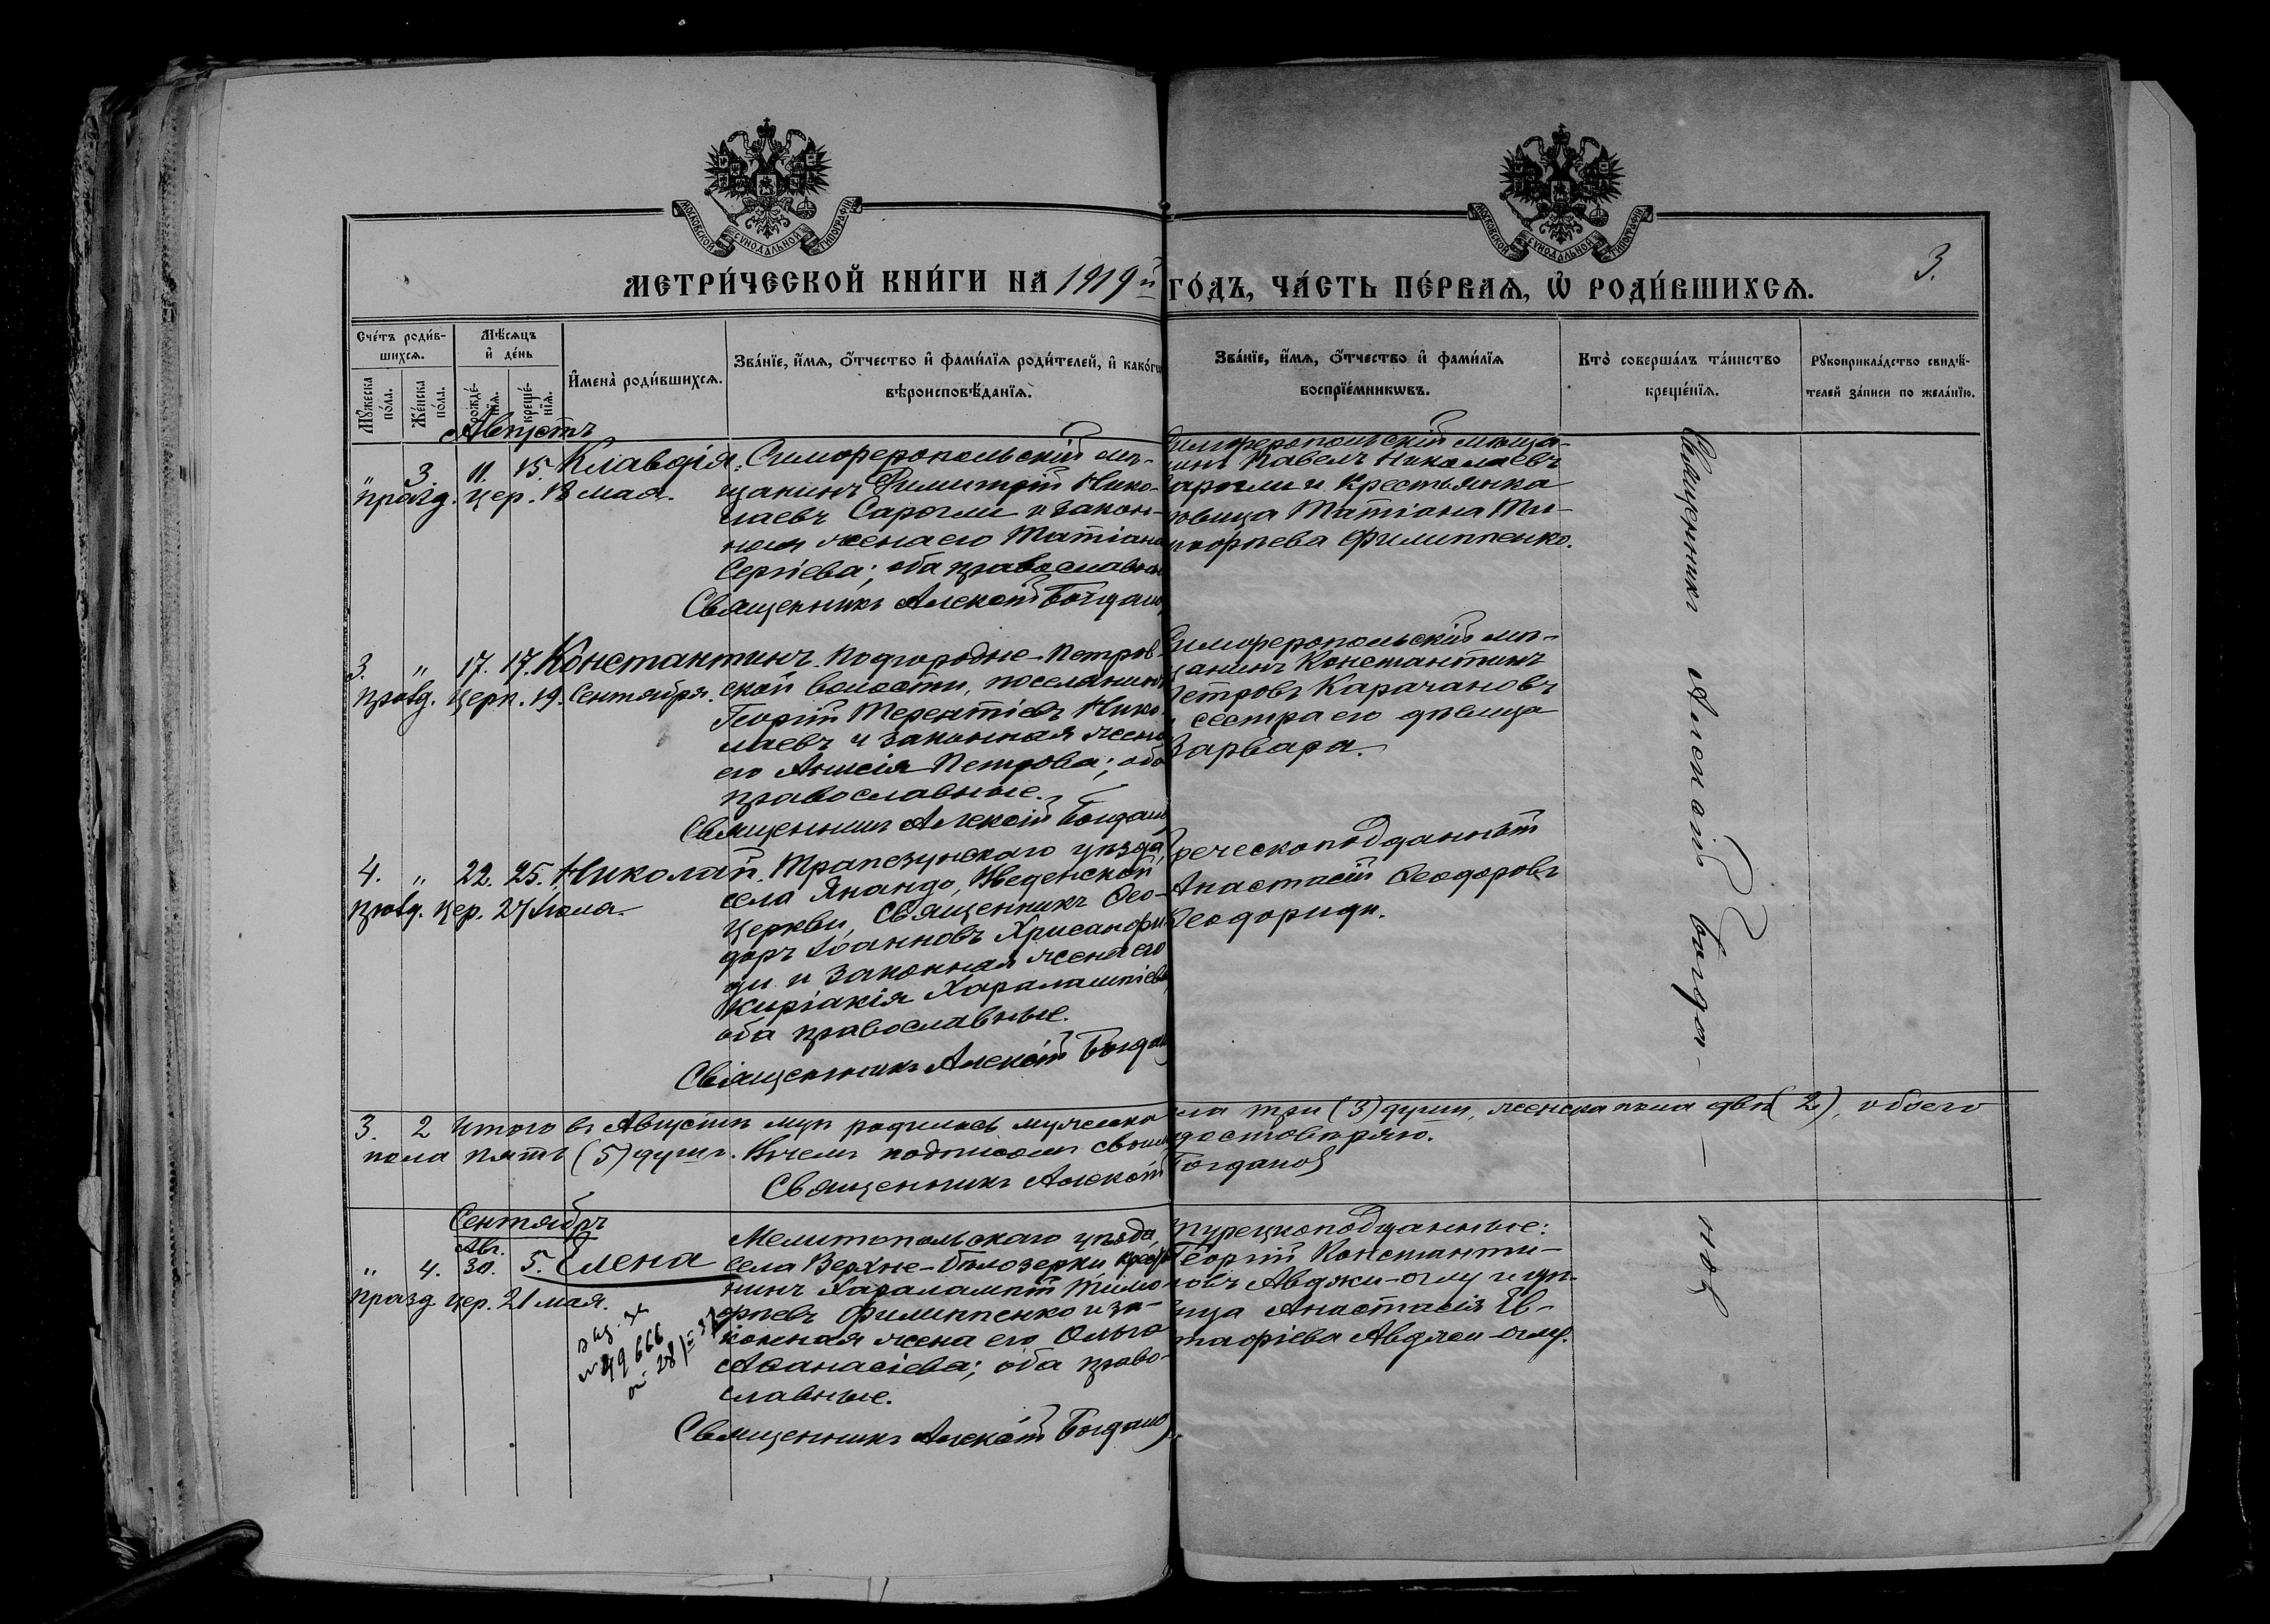 МОСКОВСКОЙ СѴНОДАЛЬНОЙ ТИПОГРАФІИ
МОСКОВСКОЙ СѴНОДАЛЬНОЙ ТИПОГРАФІИ
МЕТРИ́ЧЕСКОЙ КНИ́ГИ НА 1919й ГО́ДЪ, ЧА́СТЬ ПЕ́РВАѦ, Ѡ҆ РОДИ́ВШИХСѦ.
3.
Сче́тъ роди́в-
шихсѧ.
Мꙋ́жеска по́ла.
Же́нска по́ла.
Мѣ́сѧцъ
и҆ де́нь
рожде́-
нїѧ.
креще́-
нїѧ.
И҆мена̀ роди́вшихсѧ.
Зва́нїе, и҆́мѧ, ѻ҆́тчество и҆ фами́лїѧ роди́телей, и҆ како́гѡ
вѣроисповѣ́данїѧ.
Зва́нїе, и҆́мѧ, ѻ҆́тчество и҆ фами́лїѧ
воспрїе́мникѡвъ.
Кто̀ соверша́лъ та́инство
креще́нїѧ.
Рꙋкоприкла́дство свидѣ́-
телей за́писи по жела́нїю.
Августъ
" 3. 11. 15. Клавдія.
празд. цер. 18 мая.
Симферопольскій мѣ-
щанинъ Димитрій Нико-
лаевъ Сарогли и закон-
ная жена его Татіана
Сергіева; оба православные
Священникъ Алексій Богданов
Симферопольскій мѣща-
нинъ Павелъ Николаевъ
Сарогли и крестьянка
дѣвица Татіана Ти-
моѳеева Филиппенко.
3. " 17. 17. Константинъ.
празд. церк. 19. Сентября.
Подгородне-Петров-
ской волости, поселянинъ
Георгій Терентіевъ Нико-
лаевъ и законная жена
его Анисія Петрова; оба
православные.
Священникъ Алексій Богданов
Симферопольскій мѣ-
щанинъ Константинъ
Петровъ Карачановъ
и сестра его дѣвица
Варвара.
4. " 22. 25. Николай.
празд. цер. 27 Іюля.
Трапезунскаго уѣзда,
села Янандо, Введенской
церкви, Священникъ Ѳео-
доръ Іоанновъ Хрисанфи-
ди и законная жена его
Киріакія Харалампіева,
оба православные.
Священникъ Алексій Богданов
Греческоподданный
Анастасій Ѳеодоровъ
Ѳеодориди.
Священникъ Алексій Богда-
новъ
3. 2 Итого въ Августѣ мцѣ родилось мужеска пола три (3) души, женска пола двѣ (2), обоего
пола пять (5) душъ. Въ чемъ подписомъ своимъ удостовѣряю.
Священникъ Алексій Богданов
Сентябрь
Авг.
" 4. 30. 5. Елена
празд. цер. 21 мая.
49666
Мелитопольскаго уѣзда,
села Верхне-Бѣлозерки
Харалампій Тимо-
ѳеевъ Филиппенко и за-
конная жена его Ольга
Аѳанасіева; оба право-
славные.
Священникъ Алексій Богданов
Турецкоподданные:
Георгій Константи-
новъ Авджи-оглу и дѣ-
вица Анастасія Ев-
стафіева Авджи-оглу.